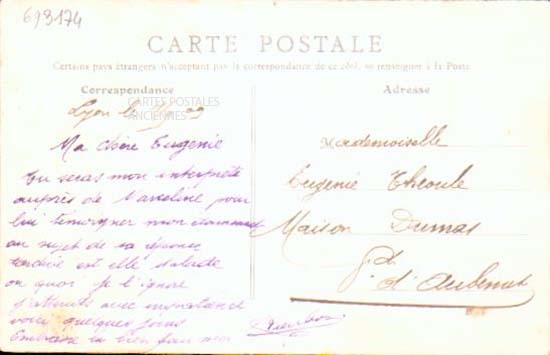 693174
CARTE POSTALE
Certains pays étrangers n'acceptant pas la correspondance de ce côté, se renseigner à la Poste
Correspondance
Adresse
CARTES POSTALES
ANCIENNES
Lyon le
Ma chère Eugenie
Tu seras mon interprète
auprès de Marceline pour
lui témoigner mon étonnement
au sujet de sa réponse
tardive est elle malade
ou quoi je l'ignore
j'attends avec impatience
voici quelques jours
Embrasse la bien pour moi
Mademoiselle
Eugenie Theoule
Maison Dumas
Gd
d'Aubenas